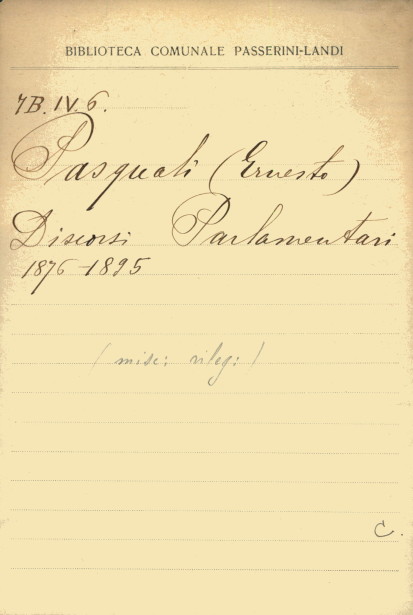 BIBLIOTECA COMUNALE PASSERINI-LANDI
7B. IV. 6.
Pasquali (Ernesto)
Discorsi Parlamentari
1876-1895
(misc: rileg:)
C.